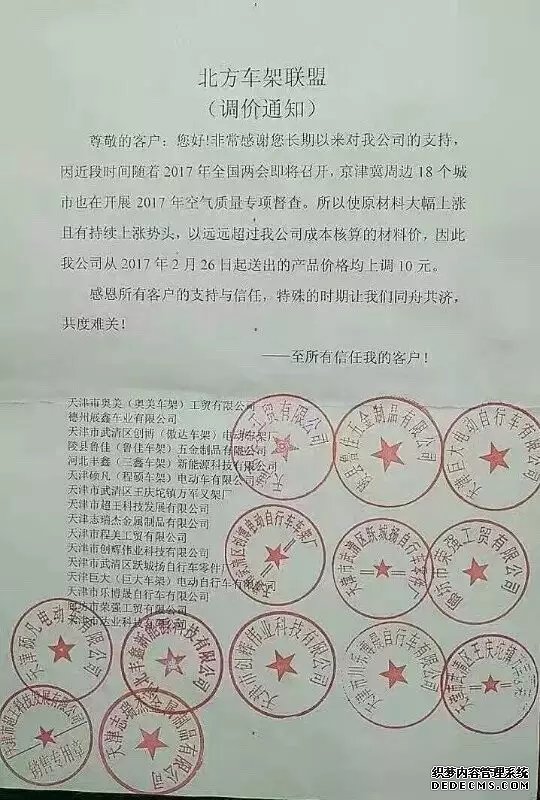 北方车架联盟
（调价通知）
尊敬的客户：您好!非常感谢您长期以来对我公司的支持，
因近段时间随着 2017 年全国两会即将召开，京津冀周边 18 个城
市也在开展 2017 年空气质量专项督查。所以使原材料大幅上涨
且有持续上涨势头，以远远超过我公司成本核算的材料价，因此
我公司从 2017 年 2 月 26 日起送出的产品价格均上调 10 元。
感恩所有客户的支持与信任，特殊的时期让我们同舟共济，
共度难关！
——至所有信任我的客户！
天津市奥美（奥美车架）工贸有限公司
德州辰鑫车业有限公司
天津市武清区创博（傲达车架）电动车架厂
陵县鲁佳（鲁佳车架）五金制品有限公司
河北丰鑫（三鑫车架）新能源科技有限公司
天津硕凡（程硕车架）电动车有限公司
天津市武清区王庆坨镇万军叉架厂
天津市超王科技发展有限公司
天津志瑞杰金属制品有限公司
天津市程美工贸有限公司
天津市创辉伟业科技有限公司
天津市武清区跃城扬自行车零件厂
天津巨大（巨大车架）电动自行车有限公司
天津市乐博晟自行车有限公司
廊坊市荣强工贸有限公司
天津市 达业科技有限公司
工贸有限公司
陵县鲁佳五金制品有限公司
天津巨大电动自行车有限公司
电动自行车车架厂
天津市武清区跃城扬自行车零件厂
廊坊市荣强工贸有限公司
天津硕凡电动车有限公司
河北丰鑫新能源科技有限公司
天津市创辉伟业科技有限公司
天津市乐博晟自行车有限公司
天津市武清区王庆坨镇
天津市超王科技发展有限公司
销售专用章
天津志瑞杰金属制品有限公司
织梦内容管理系统
DEDECMS.COM